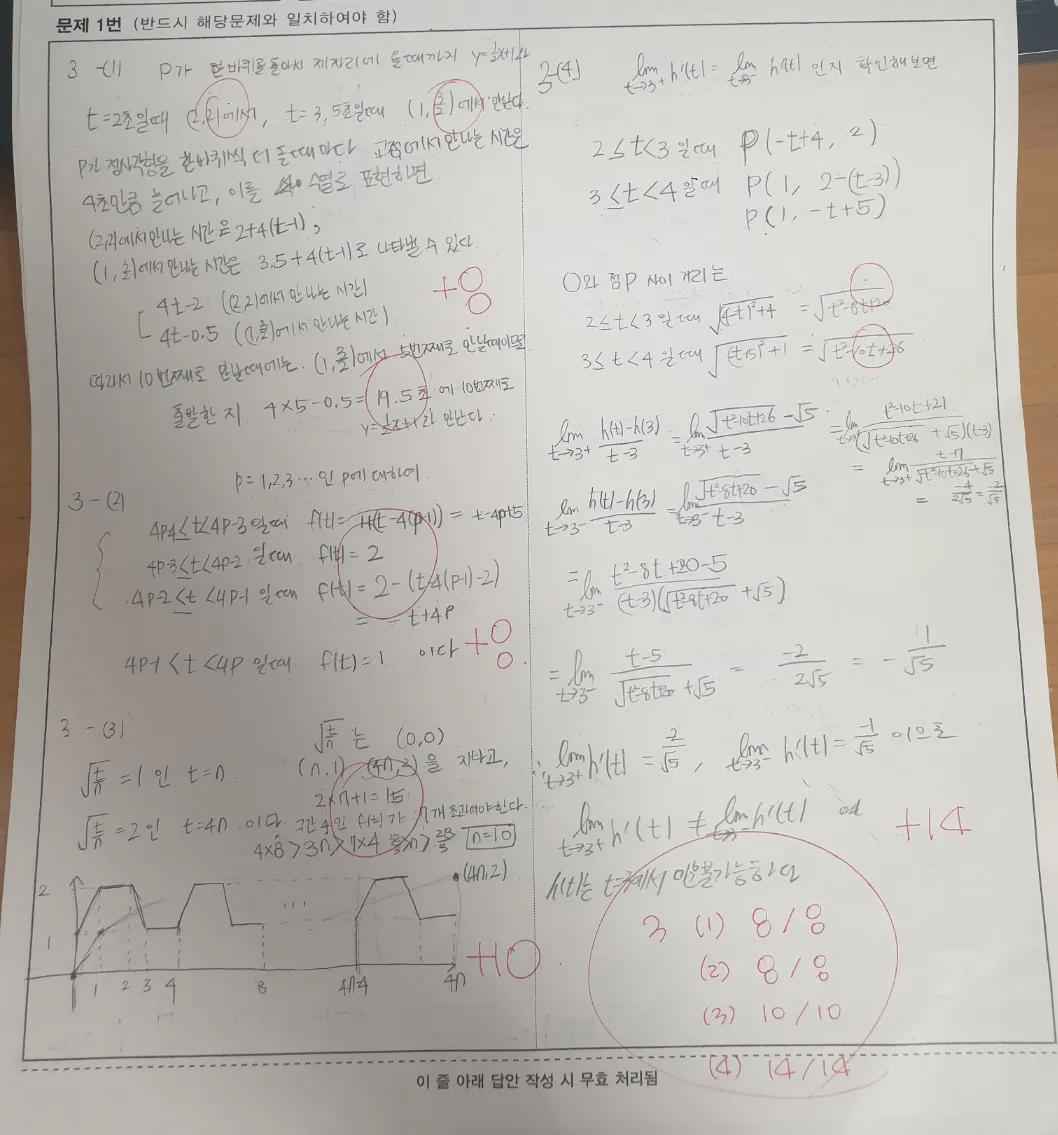 문제 1번 (반드시 해당문제와 일치하여야 함)
3-(1) P가 한바퀴를 돌아서 제자리에 올때까지 y=½x+1과
t=2초일때 (2,2)에서, t=3.5초일때 (1,3/2)에서 만난다.
P가 정사각형을 한바퀴씩 더 돌때마다 교점에서 만나는 시간은
4초만큼 늘어나고, 이를 수열로 표현하면
(2,2)에서 만나는 시간은 2+4(t-1),
(1,3/2)에서 만나는 시간은 3.5+4(t-1)로 나타낼 수 있다.
4t-2 ((2,2)에서 만나는 시간)
4t-0.5 ((1,3/2)에서 만나는 시간)
+8
따라서 10번째로 만날때에는 (1,3/2)에서 5번째로 만날때이므로
출발한 지 4×5-0.5=19.5초에 10번째로
y=½x+1과 만난다.
p=1,2,3… 인 p에 대하여
3-(2)
4p-4≤t<4p-3일때 f(t)=1+(t-4(p-1))=t-4p+5
4p-3≤t<4p-2일때 f(t)=2
4p-2≤t<4p-1일때 f(t)=2-(t-4(p-1)-2)
=-t+4p
4p-1<t<4p일때 f(t)=1 이다
+8
3-(3)
√(t/n) 는 (0,0)
√(t/n)=1인 t=n. (n,1) (4n,2)을 지나고,
2×7+1=15
√(t/n)=2인 t=4n 이다
4×8>3n>7×4 n=10
(4n,2)
2
1
1 2 3 4 8 4n-4 4n
+10
3-(4) lim t→3+ h'(t) = lim t→3- h'(t) 인지 확인해보면
2≤t<3일때 P(-t+4, 2)
3≤t<4일때 P(1, 2-(t-3))
P(1, -t+5)
O와 점P 사이 거리는
2≤t<3일때 √((4-t)²+4) = √(t²-8t+20)
3≤t<4일때 √((t-5)²+1) = √(t²-10t+26)
lim t→3+ (h(t)-h(3))/(t-3) = lim t→3+ (√(t²-10t+26)-√5)/(t-3) = lim t→3+ (t²-10t+21)/((√(t²-10t+26)+√5)(t-3))
= lim t→3+ (t-7)/(√(t²-10t+26)+√5)
= -4/(2√5) = -2/√5
lim t→3- (h(t)-h(3))/(t-3) = lim t→3- (√(t²-8t+20)-√5)/(t-3)
= lim t→3- (t²-8t+20-5)/((t-3)(√(t²-8t+20)+√5))
= lim t→3- (t-5)/(√(t²-8t+20)+√5) = -2/(2√5) = -1/√5
∴ lim t→3+ h'(t) = -2/√5, lim t→3- h'(t) = -1/√5 이므로
lim t→3+ h'(t) ≠ lim t→3- h'(t)
+14
h(t)는 t=3에서 미분불가능하다
3 (1) 8/8
(2) 8/8
(3) 10/10
(4) 14/14
이 줄 아래 답안 작성 시 무효 처리됨